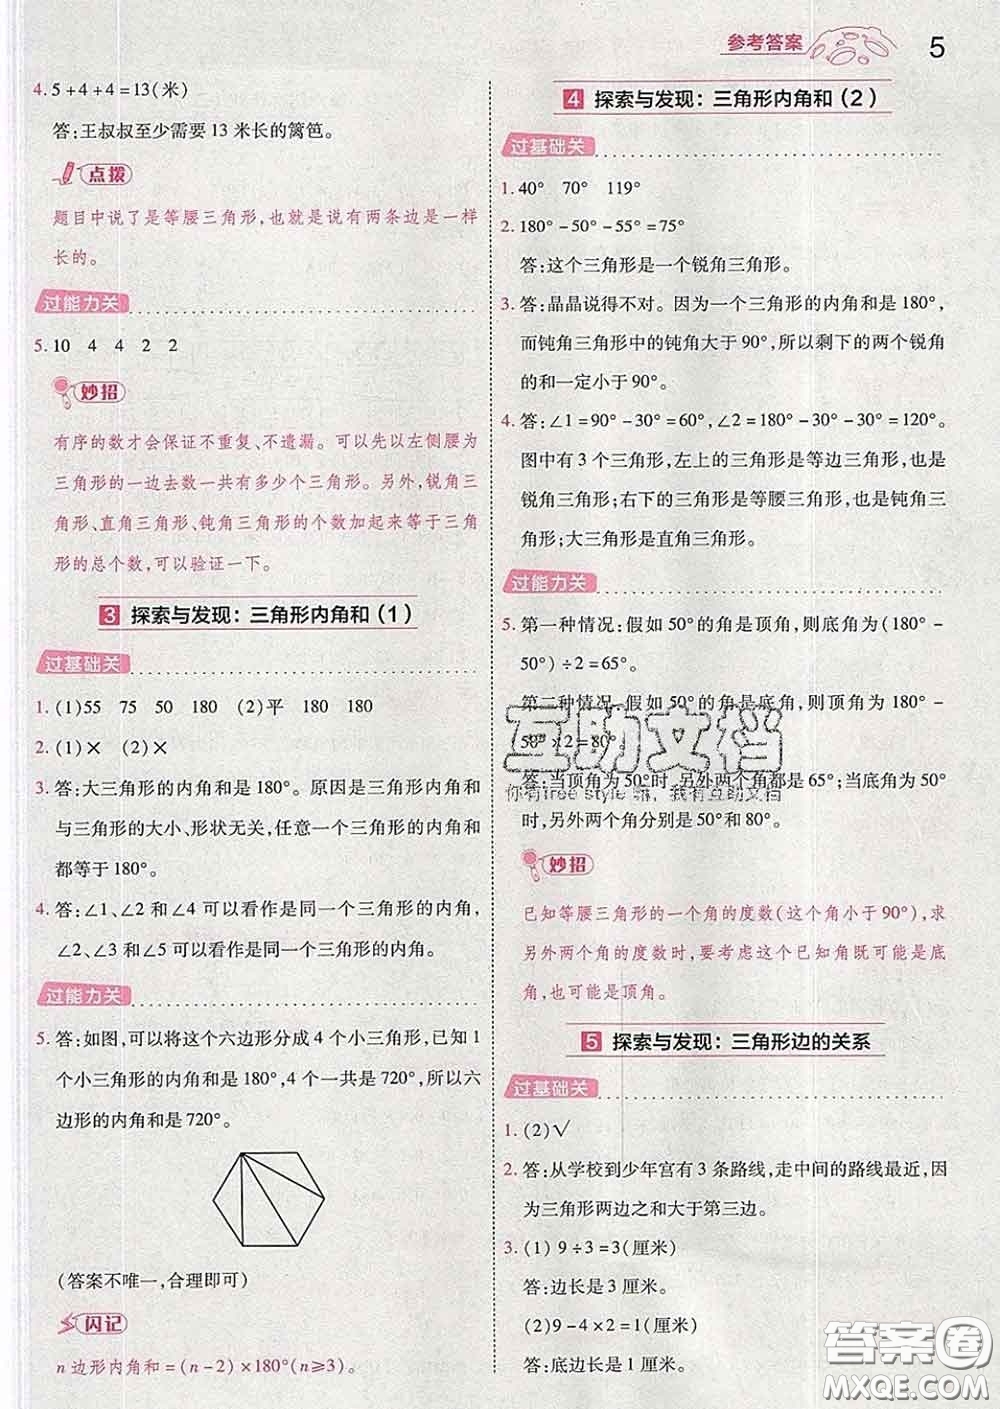 参考答案 5
4. 5+4+4=13(米)
答:王叔叔至少需要 13 米长的篱笆。
点拨
题目中说了是等腰三角形,也就是说有两条边是一样
长的。
过能力关
5. 10 4 4 2 2
妙招
有序的数才会保证不重复、不遗漏。可以先以左侧腰为
三角形的一边去数一共有多少个三角形。另外,锐角三
角形、直角三角形、钝角三角形的个数加起来等于三角
形的总个数,可以验证一下。
3 探索与发现：三角形内角和（1）
过基础关
1. (1)55 75 50 180 (2)平 180 180
2. (1)× (2)×
3. 答:大三角形的内角和是 180°。原因是三角形内角和
与三角形的大小、形状无关,任意一个三角形的内角和
都等于 180°。
4. 答:∠1、∠2 和∠4 可以看作是同一个三角形的内角,
∠2、∠3 和∠5 可以看作是同一个三角形的内角。
过能力关
5. 答:如图,可以将这个六边形分成 4 个小三角形,已知 1
个小三角形的内角和是 180°,4 个一共是 720°,所以六
边形的内角和是 720°。
(答案不唯一,合理即可)
闪记
n 边形内角和=(n-2)×180°(n≥3)。
4 探索与发现：三角形内角和（2）
过基础关
1. 40° 70° 119°
2. 180°-50°-55°=75°
答:这个三角形是一个锐角三角形。
3. 答:晶晶说得不对。因为一个三角形的内角和是 180°,
而钝角三角形中的钝角大于 90°,所以剩下的两个锐角
的和一定小于 90°。
4. 答:∠1=90°-30°=60°,∠2=180°-30°-30°=120°。
图中有 3 个三角形,左上的三角形是等边三角形,也是
锐角三角形;右下的三角形是等腰三角形,也是钝角三
角形;大三角形是直角三角形。
过能力关
5. 第一种情况:假如 50°的角是顶角,则底角为(180°-
50°)÷2=65°。
第二种情况:假如 50°的角是底角,则顶角为 180°-
50°×2=80°。
答:当顶角为 50°时,另外两个角都是 65°;当底角为 50°
时,另外两个角分别是 50°和 80°。
互助文档
妙招
已知等腰三角形的一个角的度数(这个角小于 90°),求
另外两个角的度数时,要考虑这个已知角可能是底
角,也可能是顶角。
5 探索与发现：三角形边的关系
过基础关
1. (2)√
2. 答:从学校到少年宫有 3 条路线,走中间的路线最近,因
为三角形两边之和大于第三边。
3. (1) 9÷3=3(厘米)
答:边长是 3 厘米。
(2)9-4×2=1(厘米)
答:底边长是 1 厘米。
答案圈
MXQE.COM